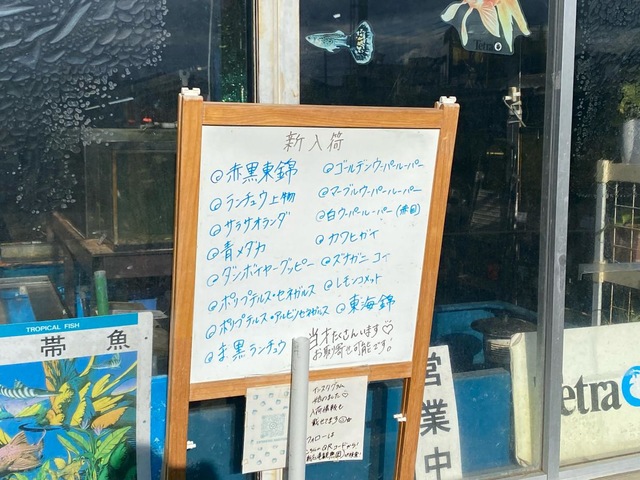 Tetra
新入荷
@赤黒東錦
@ランチュウ上物
@サラサオランダ
@青メダカ
@ダンボイヤーグッピー
@ポリプテルス・セネガルス
@ポリプテルス・アルビノセネガルス
@ま黒ランチュウ
@ゴールデンウーパールーパー
@マーブルウーパールーパー
@白ウーパールーパー(赤目)
@カワヒガイ
@ズナガニゴイ
@レモンコメット
@東海錦
当才たくさんいます♡
お取寄せ可能です!
インスタグラム
始めました♡
入荷情報も
載せてます
フォローは
TROPICAL FISH
帯魚
営業中
etra